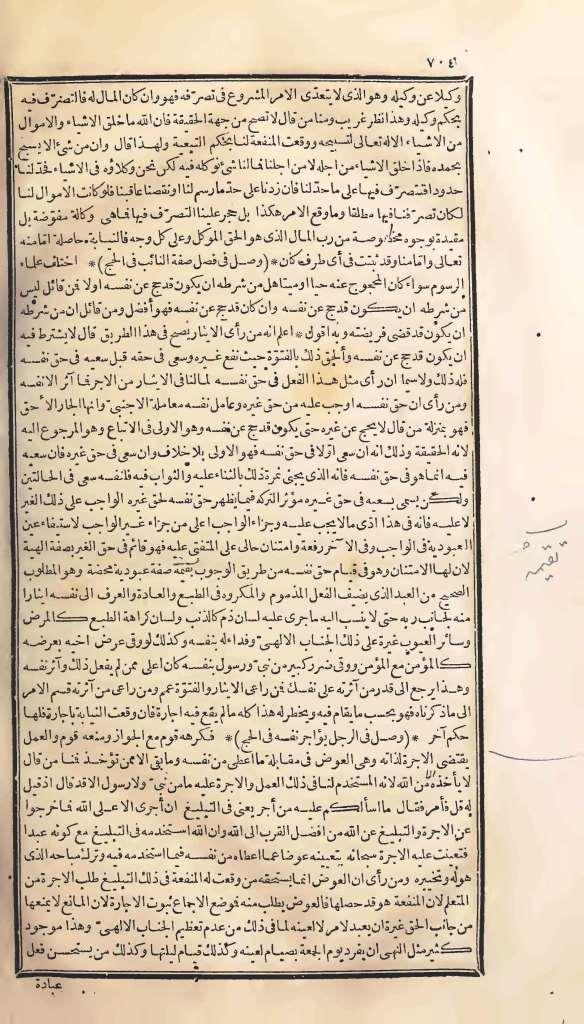 ٧٠٤
وكيلا عن وكيله وهو الذى لا يتعدى الامر المشروع فى تصرفه فهو وان كان المال له فالتصرف فيه
بحكم وكيله وهذا نظر غريب ومنا من قال لا تصح من جهة الحقيقة فان الله ما خلق الاشياء والاموال
من الاشياء الا له تعالى لتسبيحه ووقعت المنفعة لنا بحكم التبعية ولهذا قال وان من شئ الا يسبح
بحمده فاذا خلق الاشياء من اجله لا من اجلنا فمالنا شئ نوكله فيه لكن نحن وكلاؤه فى الاشياء فحد لنا
حدودا فنتصرف فيها على ما حد لنا فان زدنا على حد ما رسم لنا او نقصنا عاقبنا فلو كانت الاموال لنا
لكان تصرفنا فيها مطلقا وما وقع الامر هكذا بل حجر علينا التصرف فيها فما هى وكالة مفوضة بل
مقيدة بوجوه مخصوصة من رب المال الذى هو الحق الموكل وعلى كل وجه فالنيابة حاصلة اما منه
تعالى واما منا وقد ثبتت فى أى طرف كان * (وصل فى فصل صفة النائب فى الحج) * اختلف علماء
الرسوم سواء كان المحجوج عنه حيا او ميتا هل من شرطه ان يكون قد حج عن نفسه اولا فمن قائل ليس
من شرطه ان يكون قد حج عن نفسه وان كان قد حج عن نفسه فهو أفضل ومن قائل ان من شرطه
ان يكون قد قضى فريضته وبه اقول * اعلم انه من رأى الايثار يصح فى هذا الطريق قال لا يشترط فيه
ان يكون قد حج عن نفسه وألحق ذلك بالفتوة حيث نفع غيره وسعى فى حقه قبل سعيه فى حق نفسه
فله ذلك ولا سيما ان رأى مثل هذا الفعل فى حق نفسه لما لنا فى الايثار من الاجر فما آثر الا نفسه
ومن رأى ان حق نفسه اوجب عليه من حق غيره وعامل نفسه معاملة الاجنبى وانها الجار الاحق
فهو بمنزلة من قال لا يحج عن غيره حتى يكون قد حج عن نفسه وهو الاولى فى الاتباع وهو المرجوع اليه
لانه الحقيقة وذلك انه ان سعى اولا فى حق نفسه فهو الاولى بلا خلاف وان سعى فى حق غيره فان سعيه
فيه انما هو فى حق نفسه فانه الذى يجنى ثمرة ذلك بالثناء عليه والثواب فيه فلنفسه سعى فى الحالتين
ولكن يسمى بسعيه فى حق غيره مؤثرا لتركه فيما يظهر حق نفسه لحق غيره الواجب على ذلك الغير
لا عليه فانه فى هذا ادى ما لا يجب عليه وجزاء الواجب اعلى من جزاء غير الواجب لاستيفاء عين
العبودية فى الواجب وفى الآخر رفعة وامتنان حالى على المتفتى عليه فهو قائم فى حق الغير بصفة الهية
لان لها الامتنان وهو فى قيام حق نفسه من طريق الوجوب صفة عبودية محضة وهو المطلوب
الصحيح من العبد الذى يضيف الفعل المذموم والمكروه فى الطبع والعادة والعرف الى نفسه ايثارا
منه لجانب ربه حتى لا ينسب اليه ما جرى عليه لسان ذم كالذنب ولسان كراهة الطبع كالمرض
وسائر العيوب غيرة على ذلك الجناب الالهى وفداء له بنفسه وكذلك لو وقى عرض اخيه بعرضه
كالمؤمن مع المؤمن ووقى ضرر كبيره من نبى ورسول بنفسه كان اعلى ممن لم يفعل ذلك وآثر نفسه
وهذا يرجع الى قدر من آثرته على نفسك فمن راعى الايثار والفتوة عمم ومن راعى من آثرته قسم الامر
الى ما ذكرناه فهو بحسب ما يقام فيه ويخطر له هذا كله ما لم يقع فيه اجارة فان وقعت النيابة باجارة فلها
حكم آخر * (وصل فى الرجل يؤاجر نفسه فى الحج) * فكرهه قوم مع الجواز ومنعه قوم والعمل
يقتضى الاجرة لذاته وهى العوض فى مقابلة ما اعطى من نفسه وما بقى الا ممن تؤخذ فمنا من قال
لا يأخذه الا من الله لانه المستخدم لنا فى ذلك العمل والاجرة عليه ما من نبى ولا رسول الا قد قال اذ قيل
له قل فأمر فقال ما اسألكم عليه من أجر يعنى فى التبليغ ان أجرى الا على الله فما خرجوا
عن الاجرة والتبليغ عن الله من افضل القرب الى الله وان الله استخدمه فى التبليغ مع كونه عبدا
فتعينت عليه الاجرة سبحانه بتعيينه عوضا عما اعطاه من نفسه فيما استخدمه فيه وترك مباحه الذى
هو له وتخييره ومن رأى ان العوض انما يستحقه من وقعت له المنفعة فى ذلك التبليغ طلب الاجرة من
المتعلم لان المنفعة هو قد حصلها فالعوض يطلب منه فوضع الاجماع ثبوت الاجارة لان المانع لا يمنعها
من جانب الحق غيرة ان يعبد لامر لا لعينه لما فى ذلك من عدم تعظيم الجناب الالهى وهذا موجود
كثير مثل النهى ان يفرد يوم الجمعة بصيام لعينه وكذلك قيام ليلتها وكذلك من يستحسن فعل
عبادة